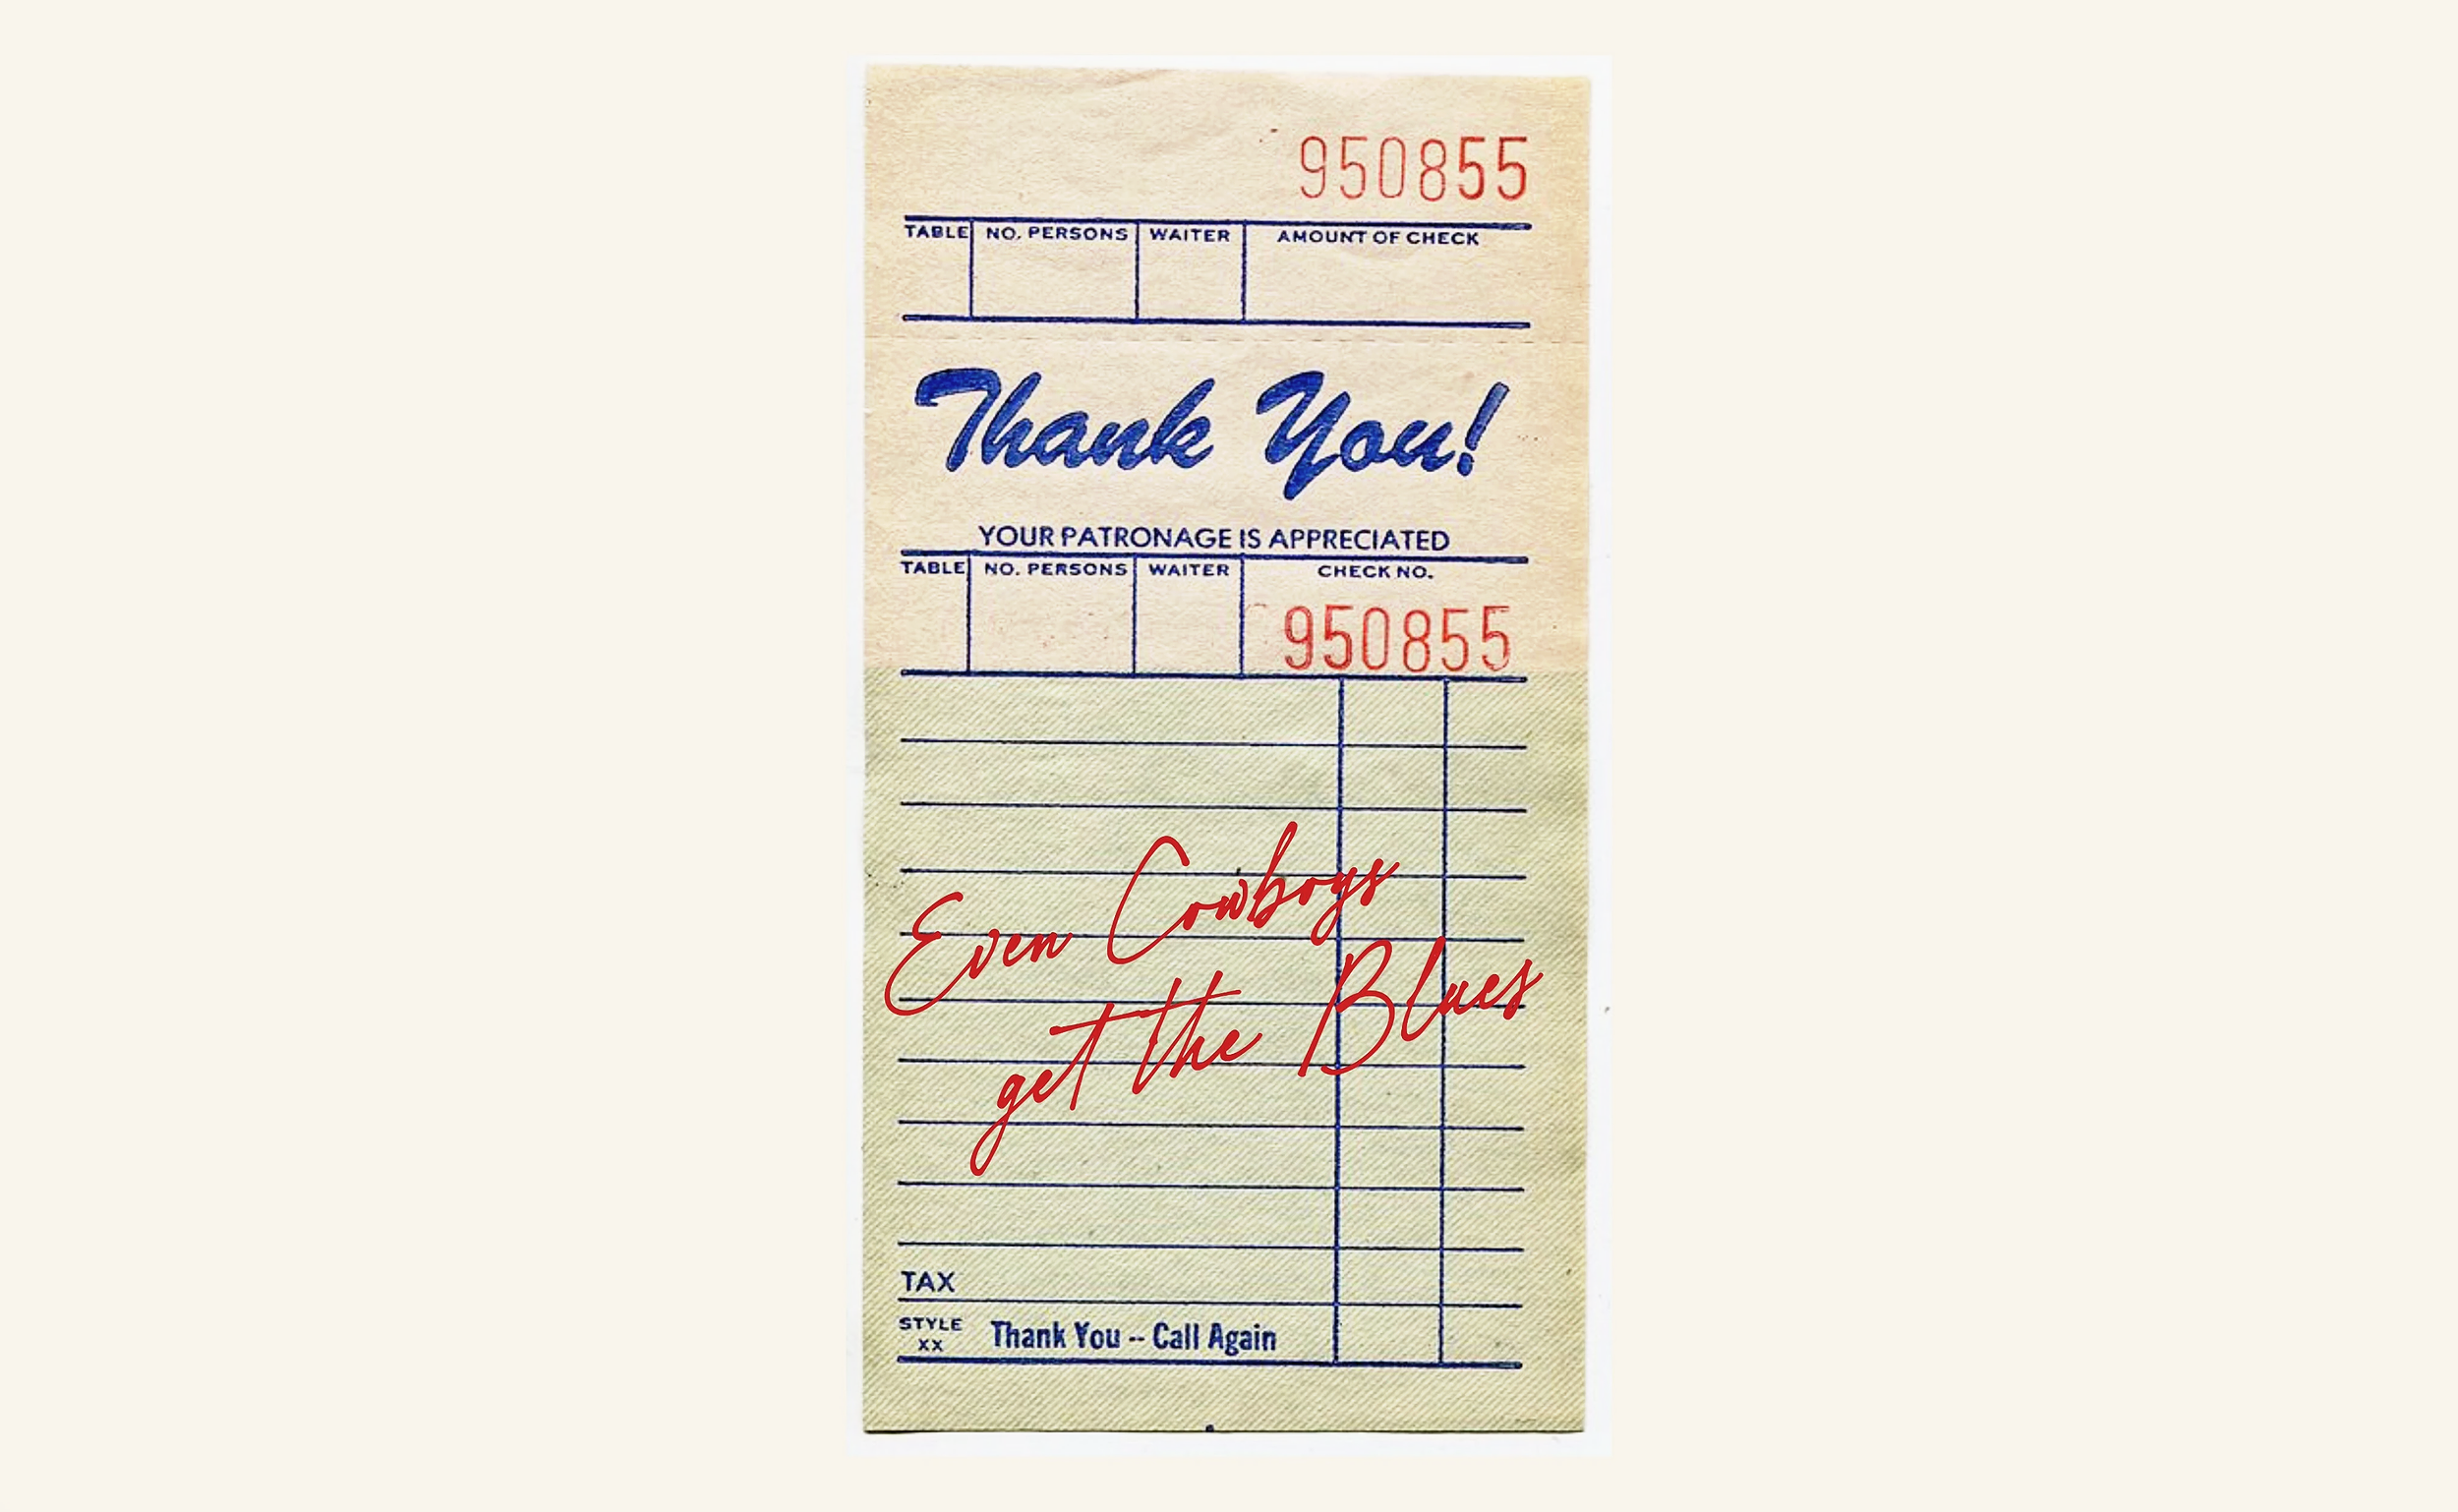 950855
TABLE NO. PERSONS WAITER AMOUNT OF CHECK
Thank You!
YOUR PATRONAGE IS APPRECIATED
TABLE NO. PERSONS WAITER CHECK NO.
950855
Even Cowboys
get the Blues
TAX
STYLE XX Thank You -- Call Again